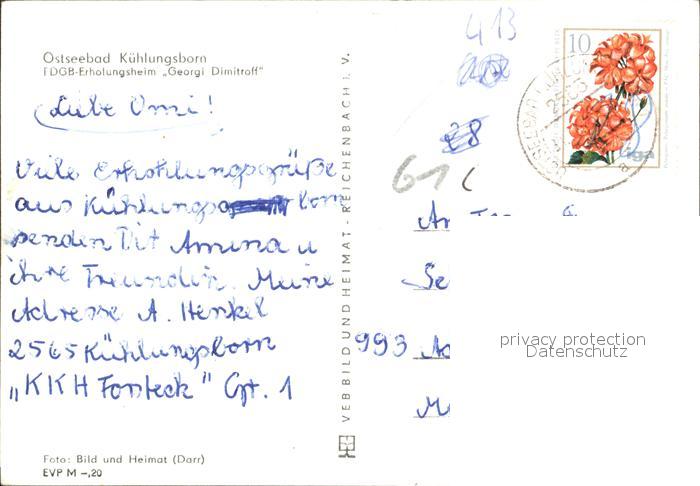 Ostseebad Kühlungsborn
FDGB-Erholungsheim „Georgi Dimitroff"
Liebe Omi!
Viele Erhohlungsgrüße
aus Kühlungs born
senden Dit Amina u
ihre Freundin. Meine
Adresse A. Henkel
2565 Kühlungsborn
„KKH Forsteck" Gr. 1
Foto: Bild und Heimat (Darr)
EVP M –,20
VEB BILD UND HEIMAT · REICHENBACH I. V.
413
28
61
10
993
privacy protection
Datenschutz